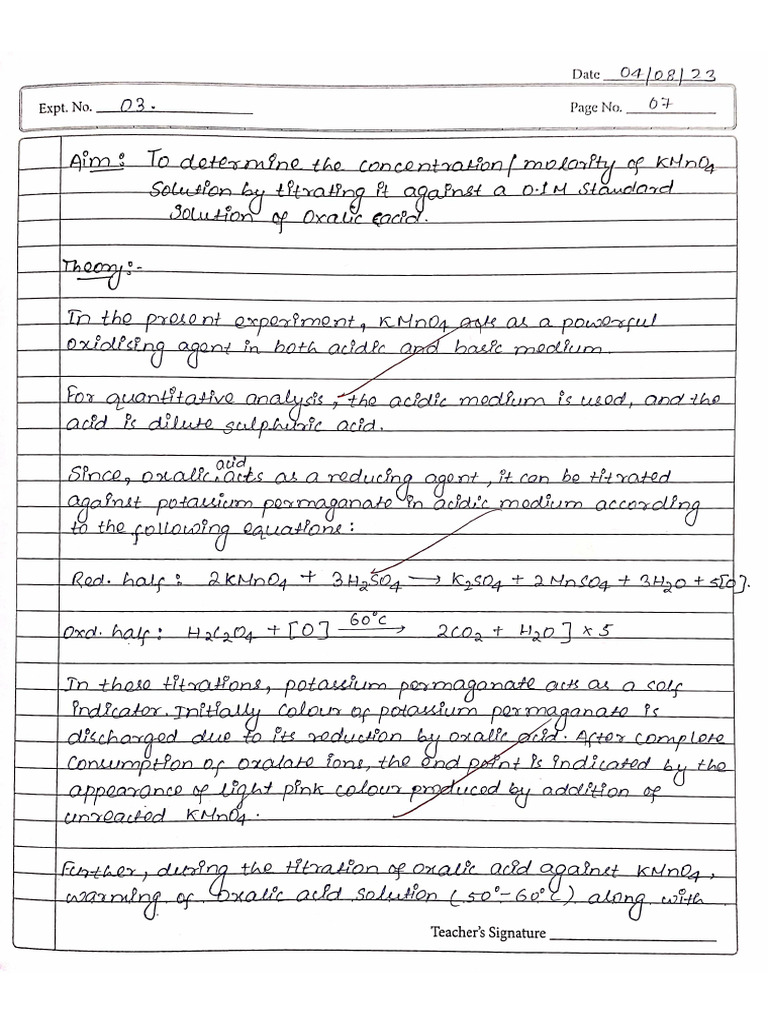 Date 04/08/23
Expt. No. 03.
Page No. 07
Aim: To determine the concentration/molarity of KMnO4
solution by titrating it against a 0.1M standard
solution of Oxalic acid.
Theory:-
In the present experiment, KMnO4 acts as a powerful
oxidising agent in both acidic and basic medium.
For quantitative analysis, the acidic medium is used, and the
acid is dilute sulphuric acid.
Since, oxalic acid acts as a reducing agent, it can be titrated
against potassium permaganate in acidic medium according
to the following equations:
Red. half: 2KMnO4 + 3H2SO4 → K2SO4 + 2MnSO4 + 3H2O + 5[O].
Oxd. half: H2C2O4 + [O] 60°C → 2CO2 + H2O] × 5
In these titrations, potassium permaganate acts as a self
indicator. Initially colour of potassium permaganate is
discharged due to its reduction by oxalic acid. After complete
consumption of oxalate ions, the end point is indicated by the
appearance of light pink colour produced by addition of
unreacted KMnO4.
Further, during the titration of oxalic acid against KMnO4,
warming of oxalic acid solution (50°-60°C) along with
Teacher's Signature